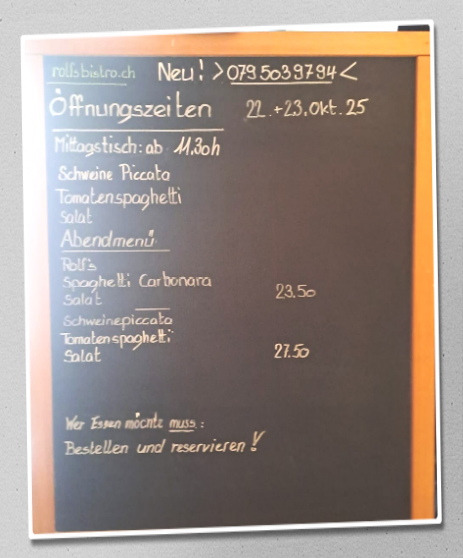 rolfsbistro.ch Neu! >079 503 97 94<
Öffnungszeiten 22.+23.Okt.25
Mittagstisch: ab 11.30h
Schweine Piccata
Tomatenspaghetti
Salat
Abendmenü
Rolf's
Spaghetti Carbonara
Salat 23.50
Schweinepiccata
Tomatenspaghetti
Salat 27.50
Wer Essen möchte muss:
Bestellen und reservieren!